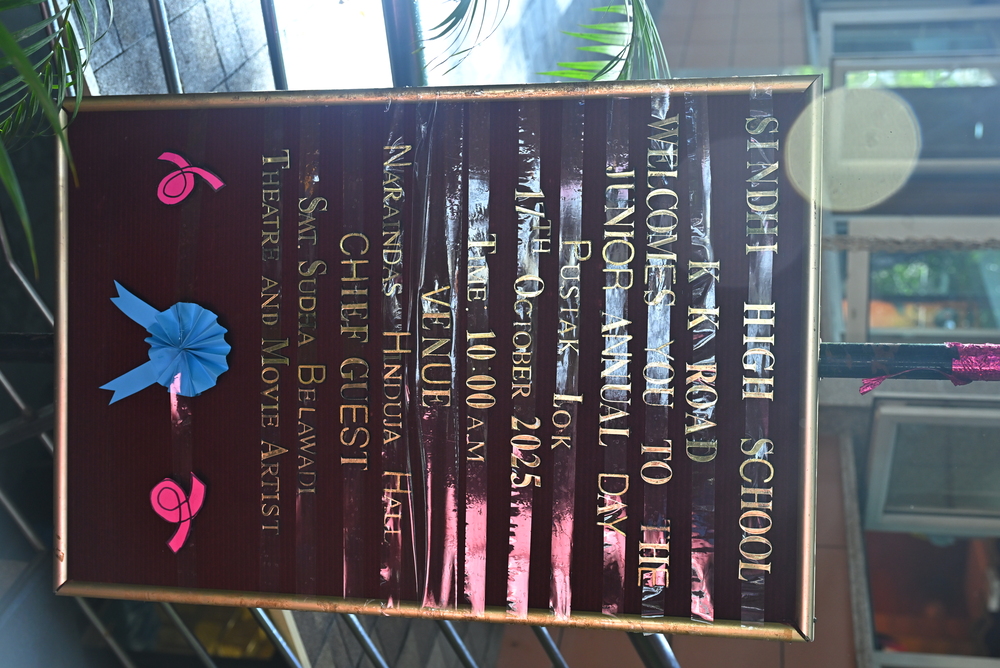 SINDHI HIGH SCHOOL
K K ROAD
WELCOMES YOU TO THE
JUNIOR ANNUAL DAY
PUSTAK LOK
17TH OCTOBER 2025
TIME 10:00 A.M
VENUE
NARAINDAS HINDUJA HALL
CHIEF GUEST
SMT SUDHA BELAWADI
THEATRE AND MOVIE ARTIST